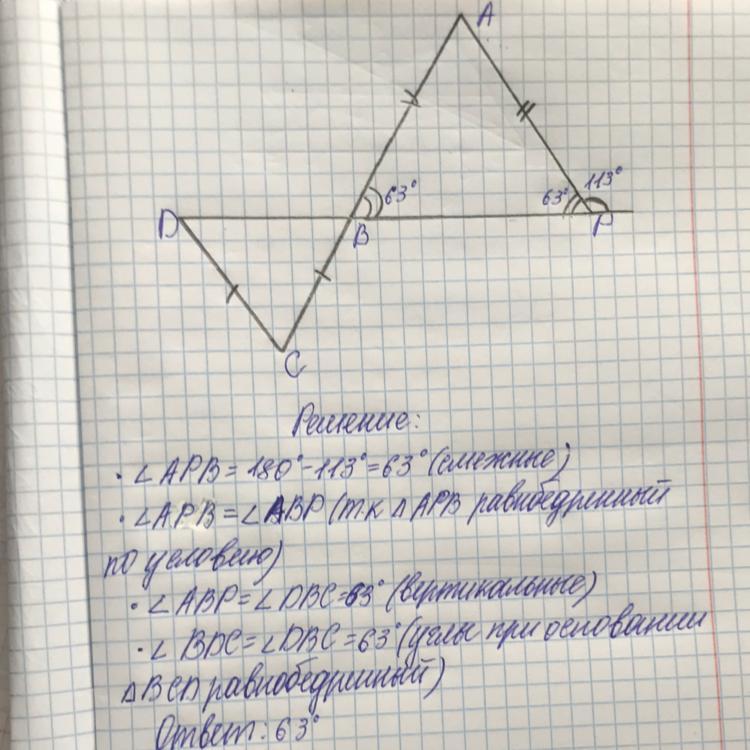 A
63°
63° 113°
D
B
P
C
Решение:
· ∠ APB = 180° - 113° = 63° (смежные)
· ∠ APB = ∠ ABP (т.к △ APB равнобедренный
по условию)
· ∠ ABP = ∠ DBC = 63° (вертикальные)
· ∠ BDC = ∠ DBC = 63° (углы при основании
△ BCD равнобедренный)
Ответ: 63°